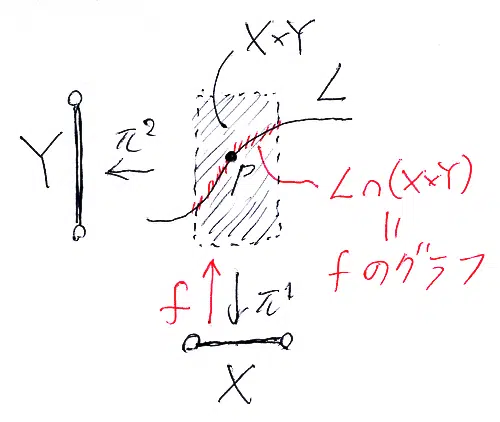 X×Y
L
Y
π²
p
L∩(X×Y)
||
fのグラフ
f
π¹
X